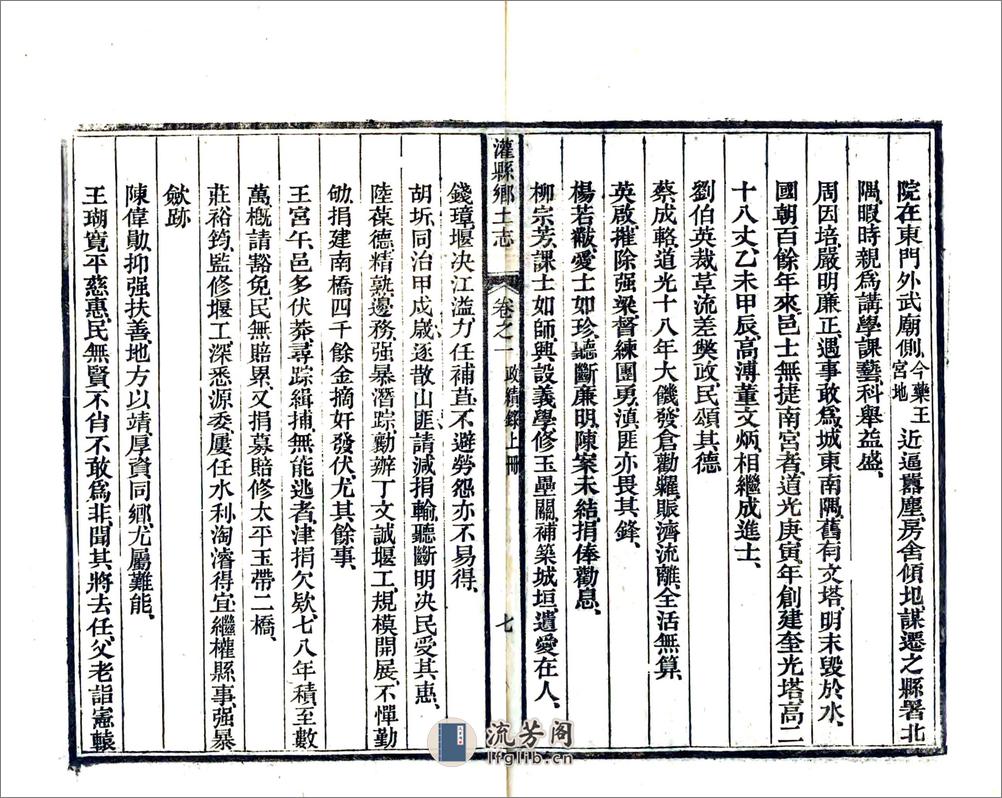 院在東門外武廟側今藥王宮地近逼囂塵房舍傾圮謀遷之縣署北
隅暇時親爲講學課藝科舉益盛
周因培嚴明廉正遇事敢爲城東南隅舊有文塔明末毀於水
國朝百餘年來邑士無捷南宮者道光庚寅年創建奎光塔高二
十八丈乙未甲辰高溥董文炳相繼成進士
劉伯英裁草流差獘政民頌其德
蔡成輅道光十八年大饑發倉勸糴賑濟流離全活無算
英啟摧除强梁督練團勇滇匪亦畏其鋒
楊若黻愛士如珍聽斷廉明陳案未結捐俸勸息
柳宗芳課士如師興設義學修玉壘關補築城垣遺愛在人
灌縣鄉土志 卷之一 政績錄上冊 七
錢璋堰决江溢力任補苴不避勞怨亦不易得
胡圻同治甲戍歲逐散山匪請減捐輸聽斷明决民受其惠
陸葆德精孰邊務强暴潛踪勷辦丁文誠堰工規模開展不憚勤
劬捐建南橋四千餘金摘奸發伏尤其餘事
王宮午邑多伏莽尋踪緝捕無能逃者津捐欠欵七八年積至數
萬概請豁免民無賠累又捐募賠修太平玉帶二橋
莊裕筠監修堰工深悉源委屢任水利淘濬得宜繼權縣事强暴
歛跡
陳偉勛抑强扶善地方以靖厚資同鄉尤屬難能
王瑚寬平慈惠民無賢不肖不敢爲非聞其將去任父老詣憲轅
流芳阁
lfglib.cn